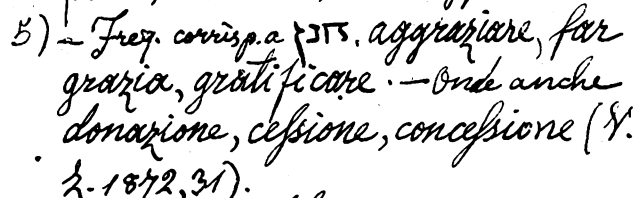 5) - Freq. corrisp. a חנן. aggraziare, far
grazia, gratificare. - Onde anche
donazione, cessione, concessione (V.
Z. 1872, 31).